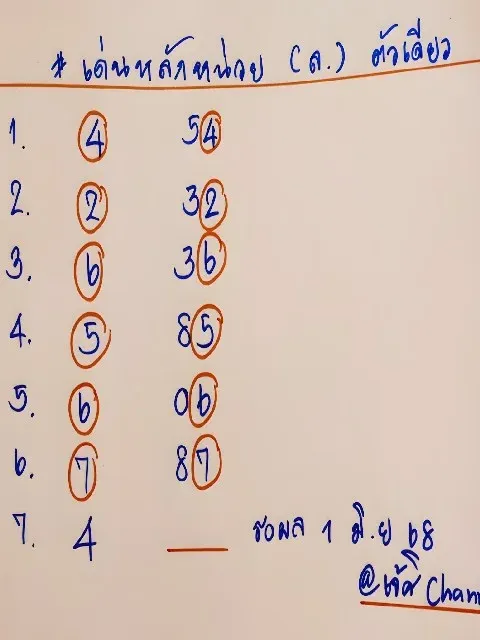 * เด่นหลักหน่วย (ล.) ตัวเดียว
1. 4 54
2. 2 32
3. 6 36
4. 5 85
5. 6 06
6. 7 87
7. 4 __ รอผล 1 มิ.ย 68
@เจ๊ Chan